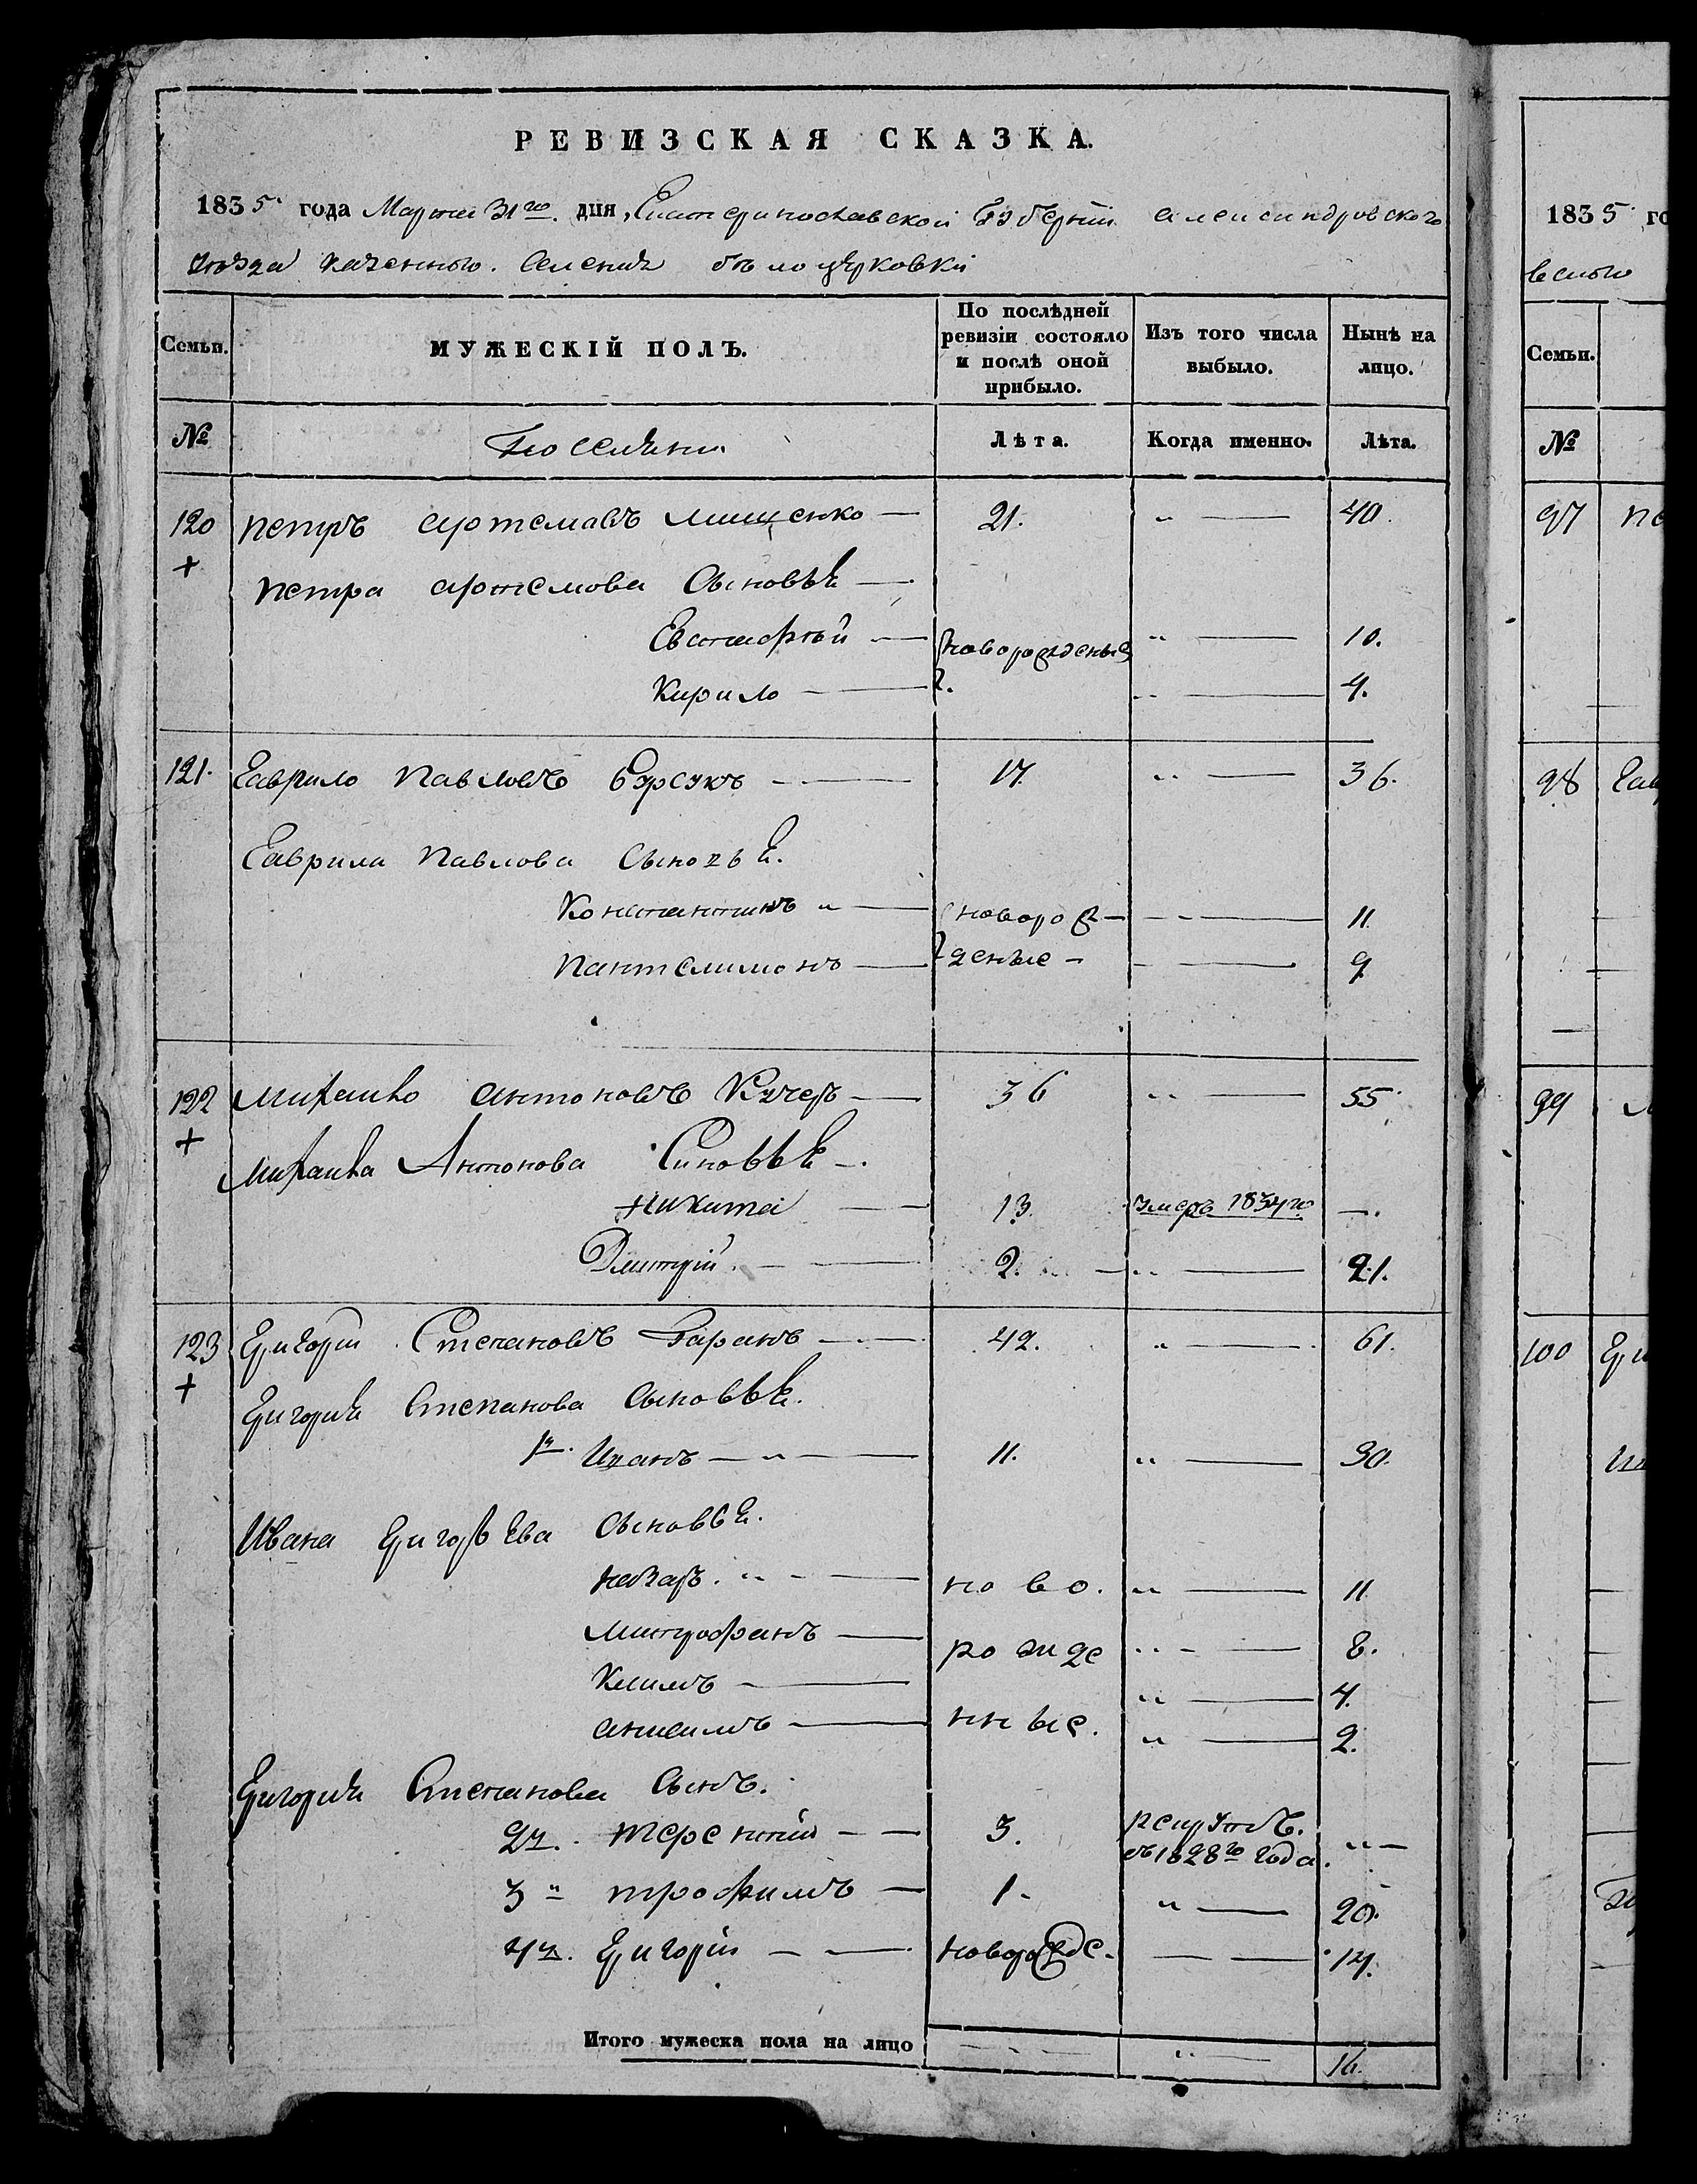 РЕВИЗСКАЯ СКАЗКА.
1835 года Марта 31го дня, Екатеринославской Губерній александровского
уѣзда казенного. Селенія бѣлоцерковки
Семьи. МУЖЕСКІЙ ПОЛЪ. По послѣдней ревизіи состояло и послѣ оной прибыло. Изъ того числа выбыло. Нынѣ на лицо.
№ Поселяни. Лѣта. Когда именно. Лѣта.
120 петръ артемовъ мищенко — 21. „ — 40.
+ петра артемова Сыновья —
Евстафтій — новорожденые „ — 10.
Кирило — „ — 4.
121. Гаврило павловъ Бурсукъ — 17. „ — 36.
Гаврила павлова Сыновья.
Константинъ „ — новорож- — „ — 11
пантелимонъ — деные - — 9
122 михайло антоновъ Кучеръ — 36 „ — 55
+ михайла Антонова Синовья —.
Никита — 13 умеръ 1834го —.
Дмитрій. — 2. — „ — 21.
123 Григорій Степановъ Таранъ — 42. „ — 61.
+ Григорія Степанова Сыновья.
1й. Иванъ — „ — 11. „ — 30.
Ивана Григорьева Сыновья.
назаръ. „ — ново. „ — 11
митрофанъ — рожде „ — 8.
Климъ — „ — 4.
анисимъ — нные. „ — 2.
Григорія Степанова Сынъ.
2й. терентій — 3. рекрутъ.
въ 1828го года. „ —
3й трофимъ — 1. „ — 20.
4й. Григорій — новорожде. — 14.
Итого мужеска пола на лицо — „ — 16.
1835 го
Семьи.
№
97 пе
98 Гав
99 м
100 Гри